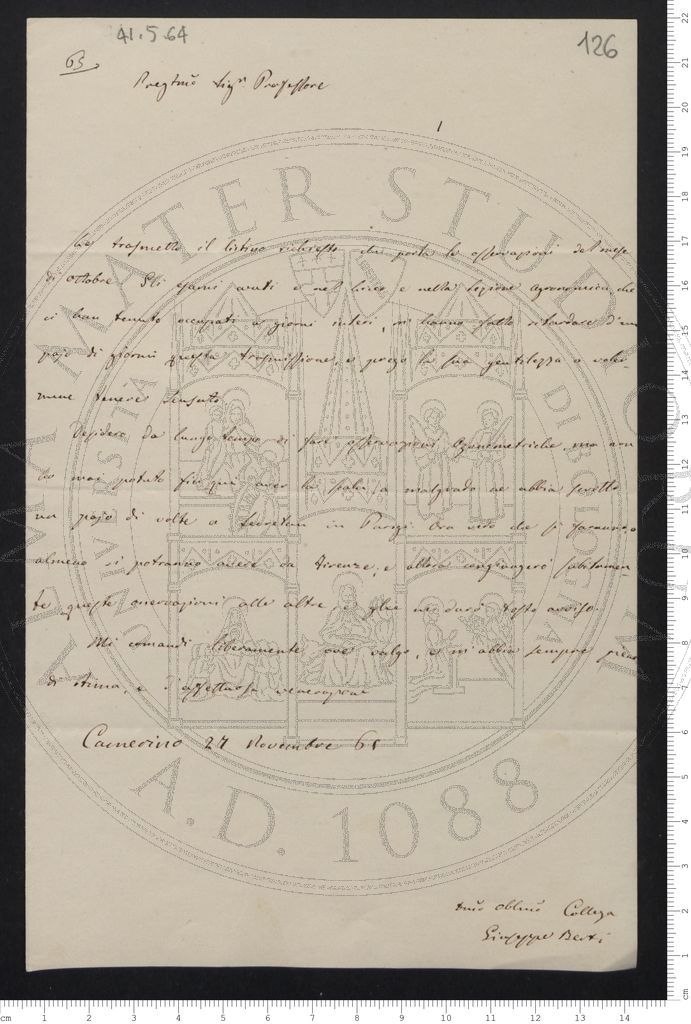 41.5.64
126
65
Pregmo Sigr Professore
Le trasmetto il listino richiesto che porta le osservazioni del mese
di ottobre. Gli esami avuti e nel liceo e nella sezione agronomica che
ci han tenuto occupati a giorni interi, mi hanno fatto ritardare d'un
pajo di giorni questa trasmissione, e prego la sua gentilezza a voler-
mene tenere scusato.
Desidero da lungo tempo di fare osservazioni Ozonometriche, ma non
ho mai potuto fin qui aver la scala, a malgrado ne abbia scritto
un pajo di volte a Secretan in Parigi. Ora vedo che si faranno, o
almeno si potranno avere da Firenze, e allora congiungerò subitamen-
te queste osservazioni alle altre, e gliene darò tosto avviso.
Mi comandi liberamente ove valgo, e m'abbia sempre pieno
di stima, e d'affettuosa venerazione
Camerino 27 Novembre 65
Suo Obblmo Collega
Giuseppe Berti
ALMA MATER STUDIORUM
UNIVERSITÀ DI BOLOGNA
A.D. 1088
cm 1 2 3 4 5 6 7 8 9 10 11 12 13 14
22
21
20
19
18
17
16
15
14
13
12
11
10
9
8
7
6
5
4
3
2
1
cm